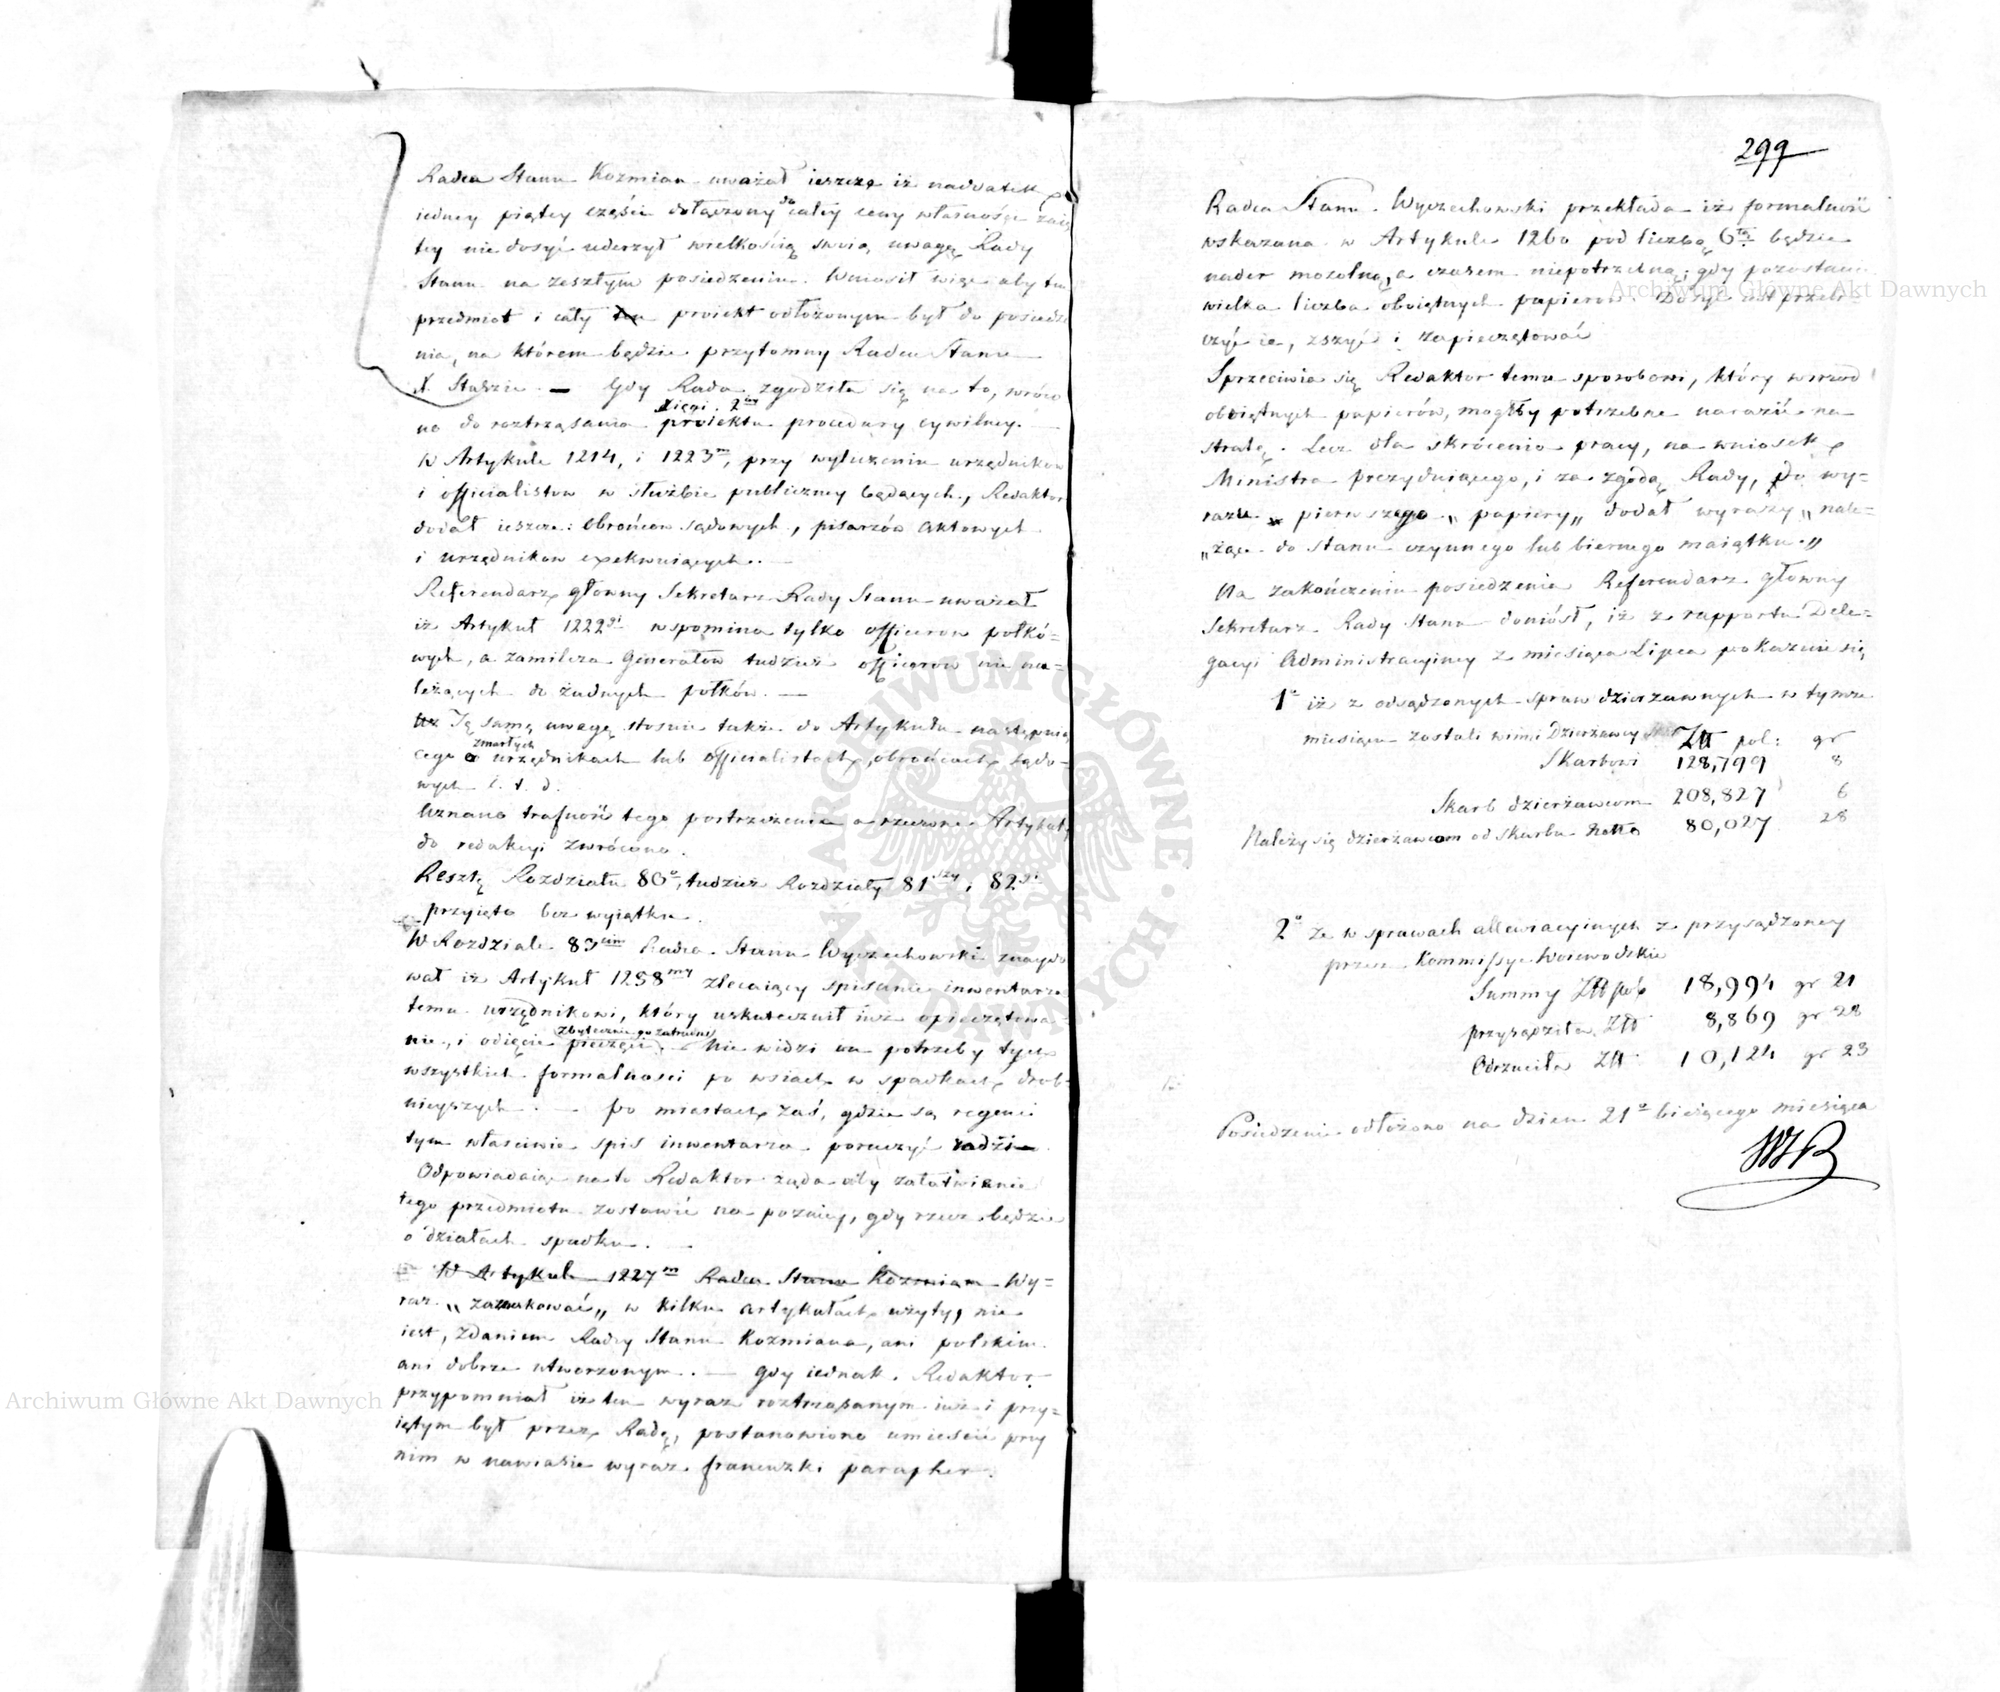 Radca Stanu Kozmian uważał ieszcze iż naddatek
iedney piątey części dołączony do całey ceny własności zaię
tey nie dosyć uderzył wielkością swoią uwagę Rady
Stanu na zeszłym posiedzeniu. Wniosił więc aby ten
przedmiot i cały ten proiekt odłożonym był do posiedze
nia, na którem będzie przytomny Radca Stanu
X. Staszic. — Gdy Rada zgodziła się na to, wróco
no do roztrząsania Xięgi 2iey proiektu procedury cywilney. —
W Artykule 1214, i 1223m, przy wyłuczeniu urzędników
i officialistow w służbie publiczney będących, Redaktor
dodał ieszcze: Obrońcow sądowych, pisarzów aktowych
i urzędnikow exekwuiących. —
Referendarz główny Sekretarz Rady Stanu uważał
iż Artykuł 1222gi wspomina tylko officerow połko-
wych, a zamilcza Generałow tudzież officerow nie na-
leżących do żadnych połków. —
Tę samę uwagę stosuie także do Artykułu następuią
cego o zmarłych urzędnikach lub officialistach, obrońcach sądo-
wych i. t. d.
Uznano trafność tego postrzeżenia a rzeczone Artykuły
do redakcyi zwrócono.
Resztę Rozdziału 80o, tudzież Rozdziały 81szy, 82gi
przyięto bez wyiątku.
W Rozdziale 83cim Radca Stanu Wyczechowski znaydo
wał iż Artykuł 1258my zlecaiący spisanie inwentarza
temu urzędnikowi, który uskutecznił iuż opieczętowa
nie, i odięcie pieczęci zbytecznie go zatrudni. — Nie widzi on potrzeby tych
wszystkich formalności po wsiach w spadkach drob-
nieyszych. — po miastach zaś, gdzie są regenci
tym właściwie spis inwentarza poruczyć radzi.
Odpowiadaiąc na to Redaktor żąda aby załatwienie
tego przedmiotu zostawić na pozniey, gdy rzecz będzie
o działach spadku. —
W Artykule 1227m Radca Stanu Kozmian Wy-
raz „zaznakować„ w kilku artykułach użyty, nie
iest, zdaniem Radcy Stanu Kozmiana, ani polskim
ani dobrze utworzonym. — Gdy iednak Redaktor
przypomniał iż ten wyraz roztrząsanym iuż i przy-
iętym był przez Radę, postanowiono umieścić przy
nim w nawiasie wyraz francuzki parapher.
299
Radca Stanu Wyczechowski przekłada iż formalność
wskazana w Artykule 1260 pod liczbą 6tą będzie
nader mozolną, a czasem niepotrzebną; gdy pozostanie
wielka liczba oboiętnych papierow. Dosyć iest przeli-
czyć ie, zszyć i zapieczętować
Sprzeciwia się Redaktor temu sposobowi, który wśrzod
oboiętnych papierów, mogłby potrzebne narazić na
stratę. Lecz dla skrócenia pracy, na wniosek
Ministra prezyduiącego, i za zgodą Rady, Do wy-
razu pierwszego „papiery„ dodał wyrazy „nale-
„żące do stanu czynnego lub biernego maiątku.„
Na zakończeniu posiedzenia Referendarz główny
Sekretarz Rady Stanu doniósł, iż z rapportu Dele-
gacyi Administracyiney z miesiąca Lipca pokazuie się
1o iż z osądzonych spraw dzierzawnych w tymże
miesiącu zostali winni Dzierżawcy Złł pol: gr
Skarbowi 128,799 8
Skarb dzierżawcom 208,827 6
Należy się dzierżawcom od skarbu Netto 80,027 28
2o że w sprawach allewiacyinych z przysądzoney
przez Kommissye Woiewodzkie
Summy Złł pol 18,994 gr 21
przysądziła Złł 8,869 gr 28
Odrzuciła Złł 10,124 gr 23
Posiedzenie odłożono na dzien 21o bieżącego miesiąca
Archiwum Główne Akt Dawnych
Archiwum Główne Akt Dawnych
ARCHIWUM GŁÓWNE AKT DAWNYCH